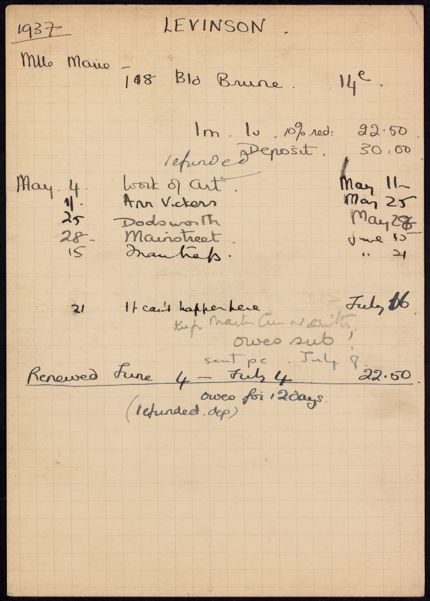 1937
LEVINSON.
Mlle Marie -
118 Bld Brune. 14e.
1m. 1v. 10% red: 22.50
refunded Deposit. 30.00
May. 4. Work of Art. May 11-
11. Ann Vickers May 25
25 Dodsworth May 28
28- Mainstreet. June 15
15 Mantrap. " 21
21 It can't happen here July 16
Keep Martin
owes sub!
sent pc. July 8.
Renewed June 4 - July 4 22.50.
owes for 12 days.
(refunded. dep)